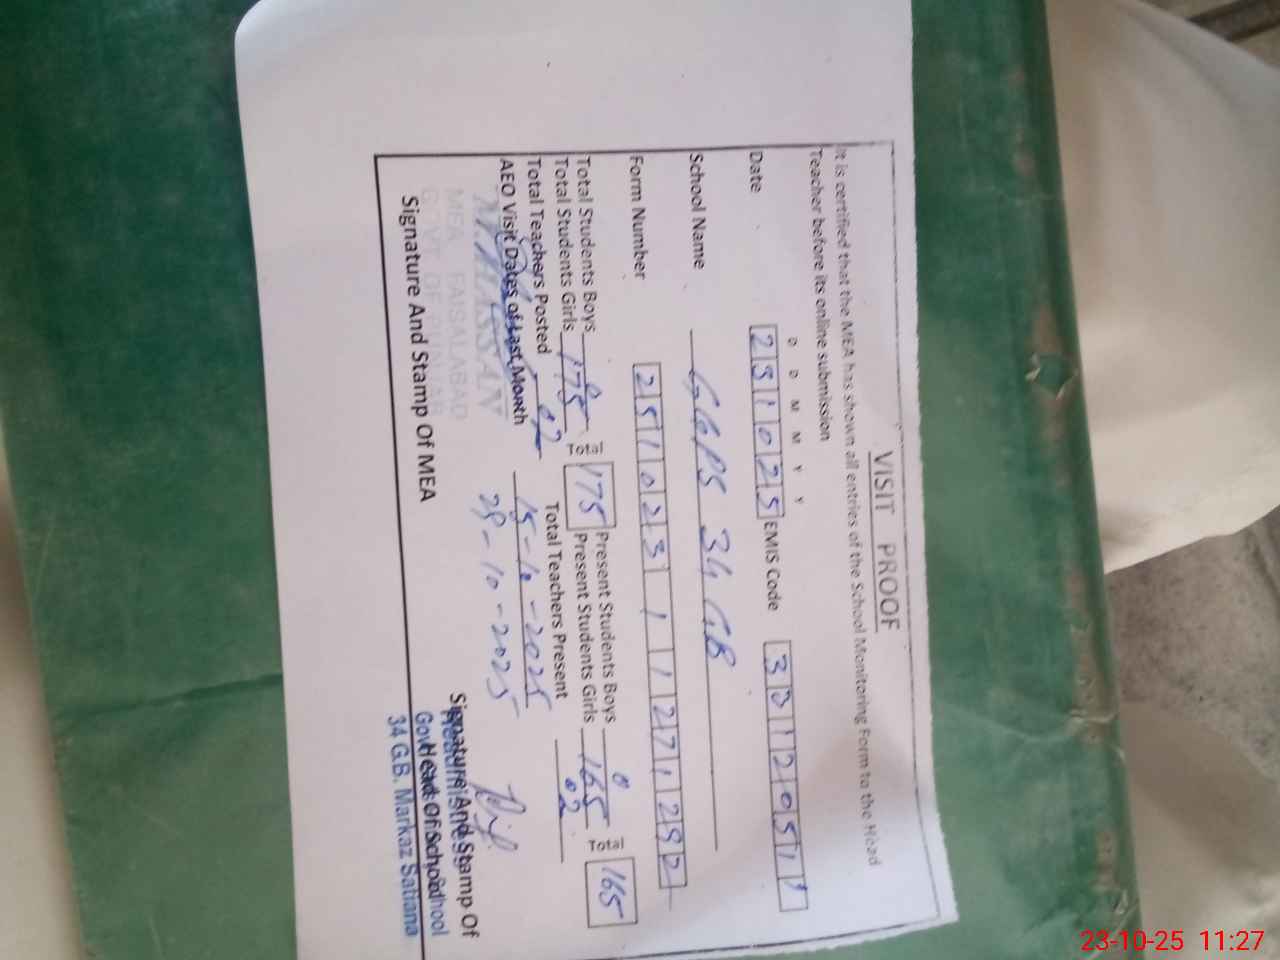 VISIT PROOF
It is certified that the MEA has shown all entries of the School Monitoring Form to the Head
Teacher before its online submission
D D M M Y Y
Date 231025 EMIS Code 33120511
School Name GGPS 34 GB
Form Number
Total Students Boys 0 Present Students Boys 0
Total Students Girls 175 Total 175 Present Students Girls 165 Total 165
Total Teachers Posted 02 Total Teachers Present 02
AEO Visit Dates of Last Month 15-10-2025
29-10-2025
M. HASSAN
MEA FAISALABAD
GOVT OF PUNJAB
Signature And Stamp Of MEA
Signature And Stamp Of
Head Of School
34 G.B. Markaz Satiana
23-10-25 11:27